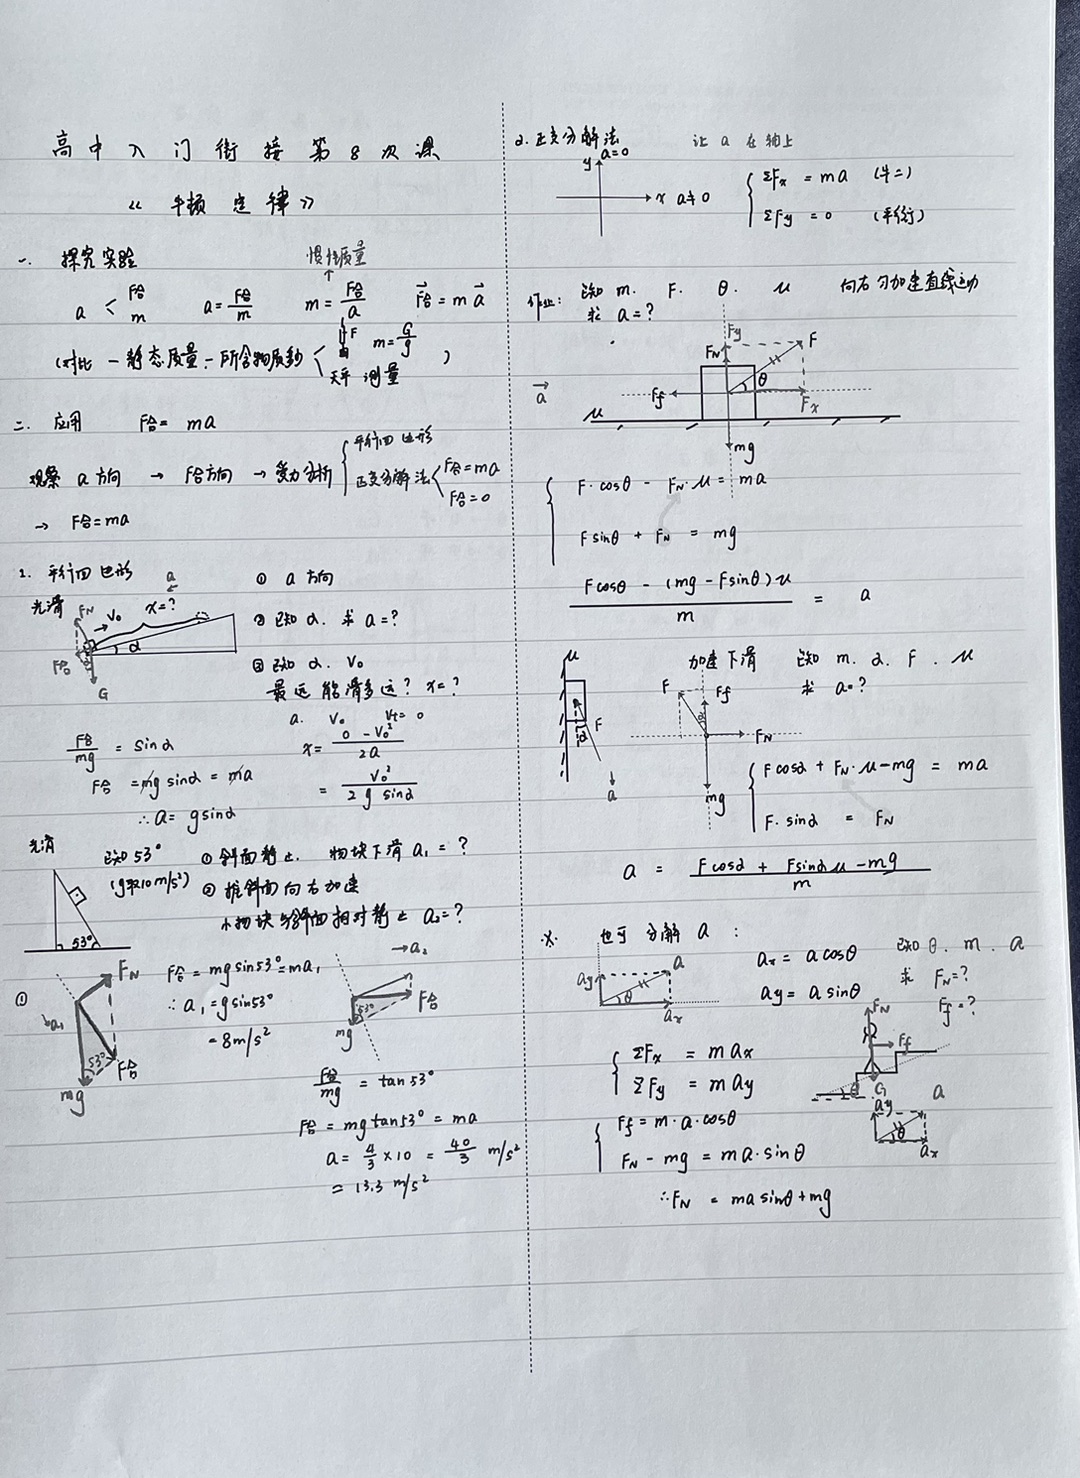 高中入门衔接第8次课
《牛顿定律》
一. 探究实验
惯性质量
↑
a < F合 m
a = F合/m
m = F合/a
F合 = m a
(对比 - 静态质量 - 所含物质多少 < F m = G/g
天平 测量 )
二. 应用 F合 = ma
观察 a 方向 → F合方向 → 受力分析 { 平行四边形
正交分解法 < F合 = ma
F合 = 0
→ F合 = ma
1. 平行四边形
光滑
a
FN
V0
x = ?
α
F合
G
① a 方向
② 已知 α. 求 a = ?
③ 已知 α. V0
最远能滑多远? x = ?
a. V0 Vt = 0
x = (0 - V0²)/2a
= V0²/(2 g sinα)
F合/mg = sinα
F合 = mg sinα = ma
∴ a = g sinα
光滑
已知 53°
(g取10 m/s²)
① 斜面静止. 物块下滑 a1 = ?
② 推斜面向右加速
小物块与斜面相对静止 a2 = ?
53°
①
FN
a1
53°
F合
mg
F合 = mg sin53° = ma1
∴ a1 = g sin53°
= 8 m/s²
→ a2
F合
53°
mg
F合/mg = tan53°
F合 = mg tan53° = ma
a = 4/3 × 10 = 40/3 m/s²
= 13.3 m/s²
2. 正交分解法
让 a 在轴上
y a = 0
x a ≠ 0
{ ΣFx = ma (牛二)
ΣFy = 0 (平衡)
作业: 已知 m. F. θ. μ 向右匀加速直线运动
求 a = ?
Fy
FN
F
θ
Ff
Fx
a
μ
mg
{ F·cosθ - FN·μ = ma
F sinθ + FN = mg
(F cosθ - (mg - F sinθ)μ)/m = a
μ
F
α
a
加速下滑 已知 m. α. F. μ
求 a = ?
F
Ff
α
FN
mg
{ F cosα + FN·μ - mg = ma
F·sinα = FN
a = (F cosα + F sinα μ - mg)/m
※. 也可分解 a:
ay
a
θ
ax
ax = a cosθ
ay = a sinθ
已知 θ. m. a
求 FN = ?
Ff = ?
FN
Ff
θ
G
ay
a
θ
ax
{ ΣFx = max
ΣFy = may
{ Ff = m·a·cosθ
FN - mg = ma·sinθ
∴ FN = ma sinθ + mg